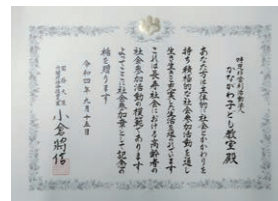 特定非営利活動法人
かながわ子ども教室 殿
あなた方は主体的に社会とかかわりを
持ち積極的な社会参加活動を通し
生き生きと充実した生活を送られています
これは長寿社会における高齢者の
社会参加活動の模範であります
よってここに社会参加章として記念の
楯を贈ります
令和四年九月十五日
小倉將信